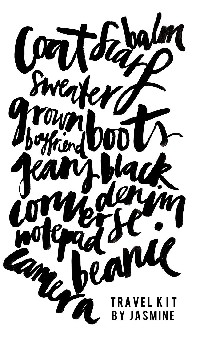 coat scarf balm
sweater
grown boots
boyfriend
jeans black
converse denim
notepad
camera beanie
TRAVEL KIT
BY JASMINE